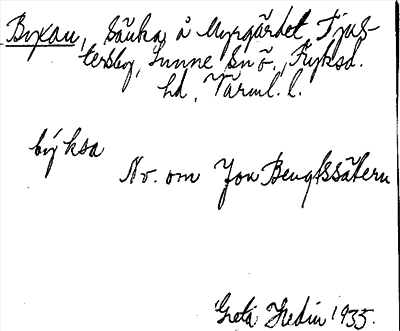 Byxan, Sänka å Myrgärdet, Ljus-
tersby, Sunne Sn ö., Fryksd.
hd, Värml. l.
býksa
No. om Jon Bengtssätern
Greta Hedin 1935.